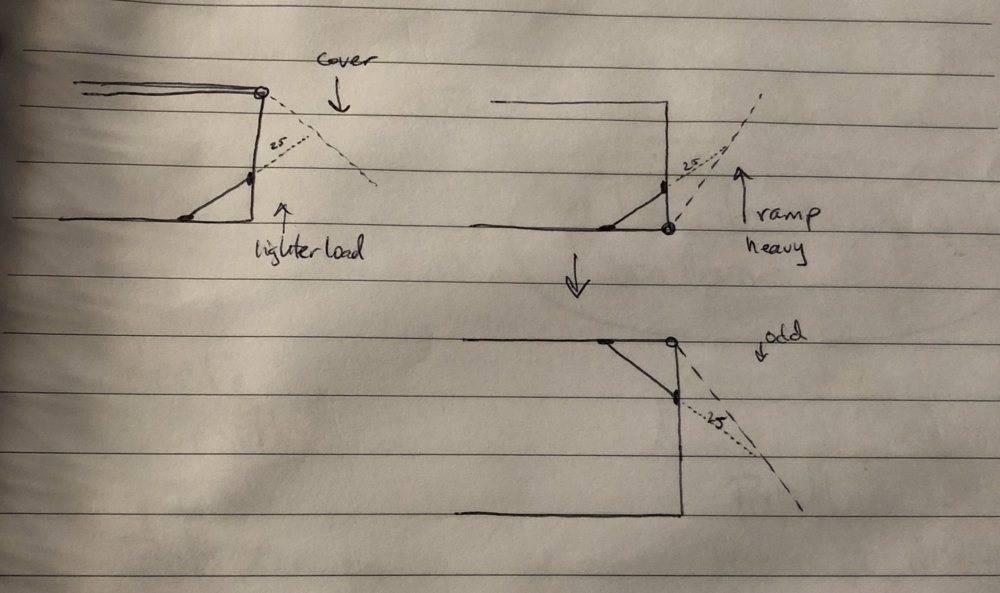 cover
25
lighter load
25
ramp
heavy
odd
25